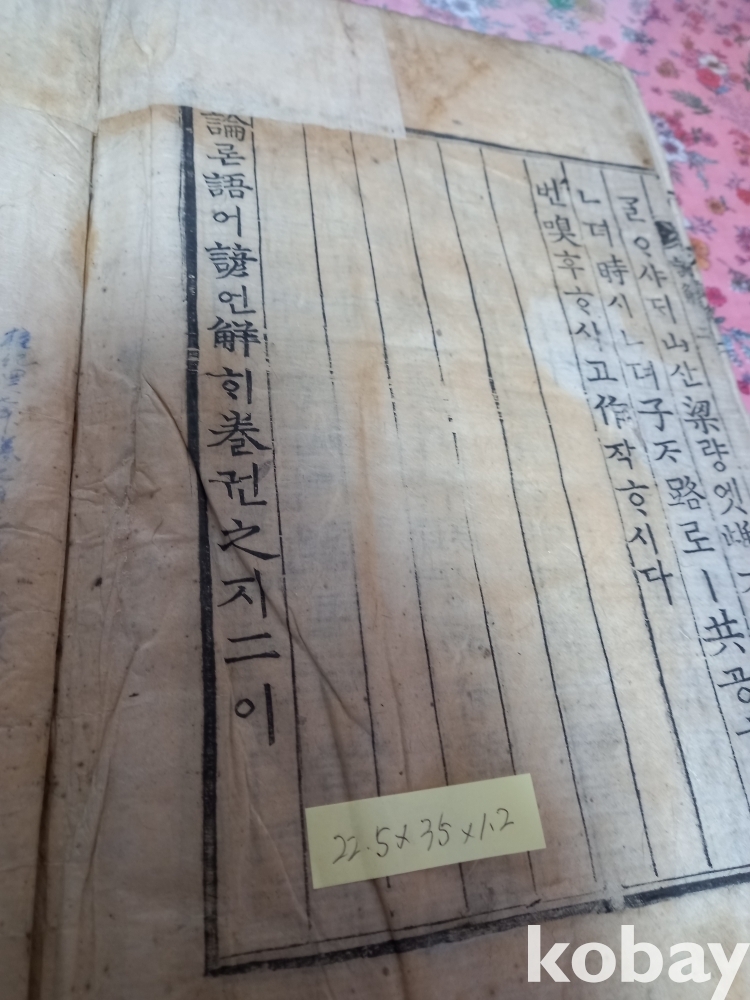 ᄀᆞᆯᄋᆞ샤ᄃᆡ山산梁량엣雌
ㄴ뎌時시ㄴ뎌子ᄌᆞ路로ㅣ共공
번嗅후ᄒᆞ시고作작ᄒᆞ시다
論론語어諺언解ᄒᆡ卷권之지二이
22.5×35×1.2
kobay